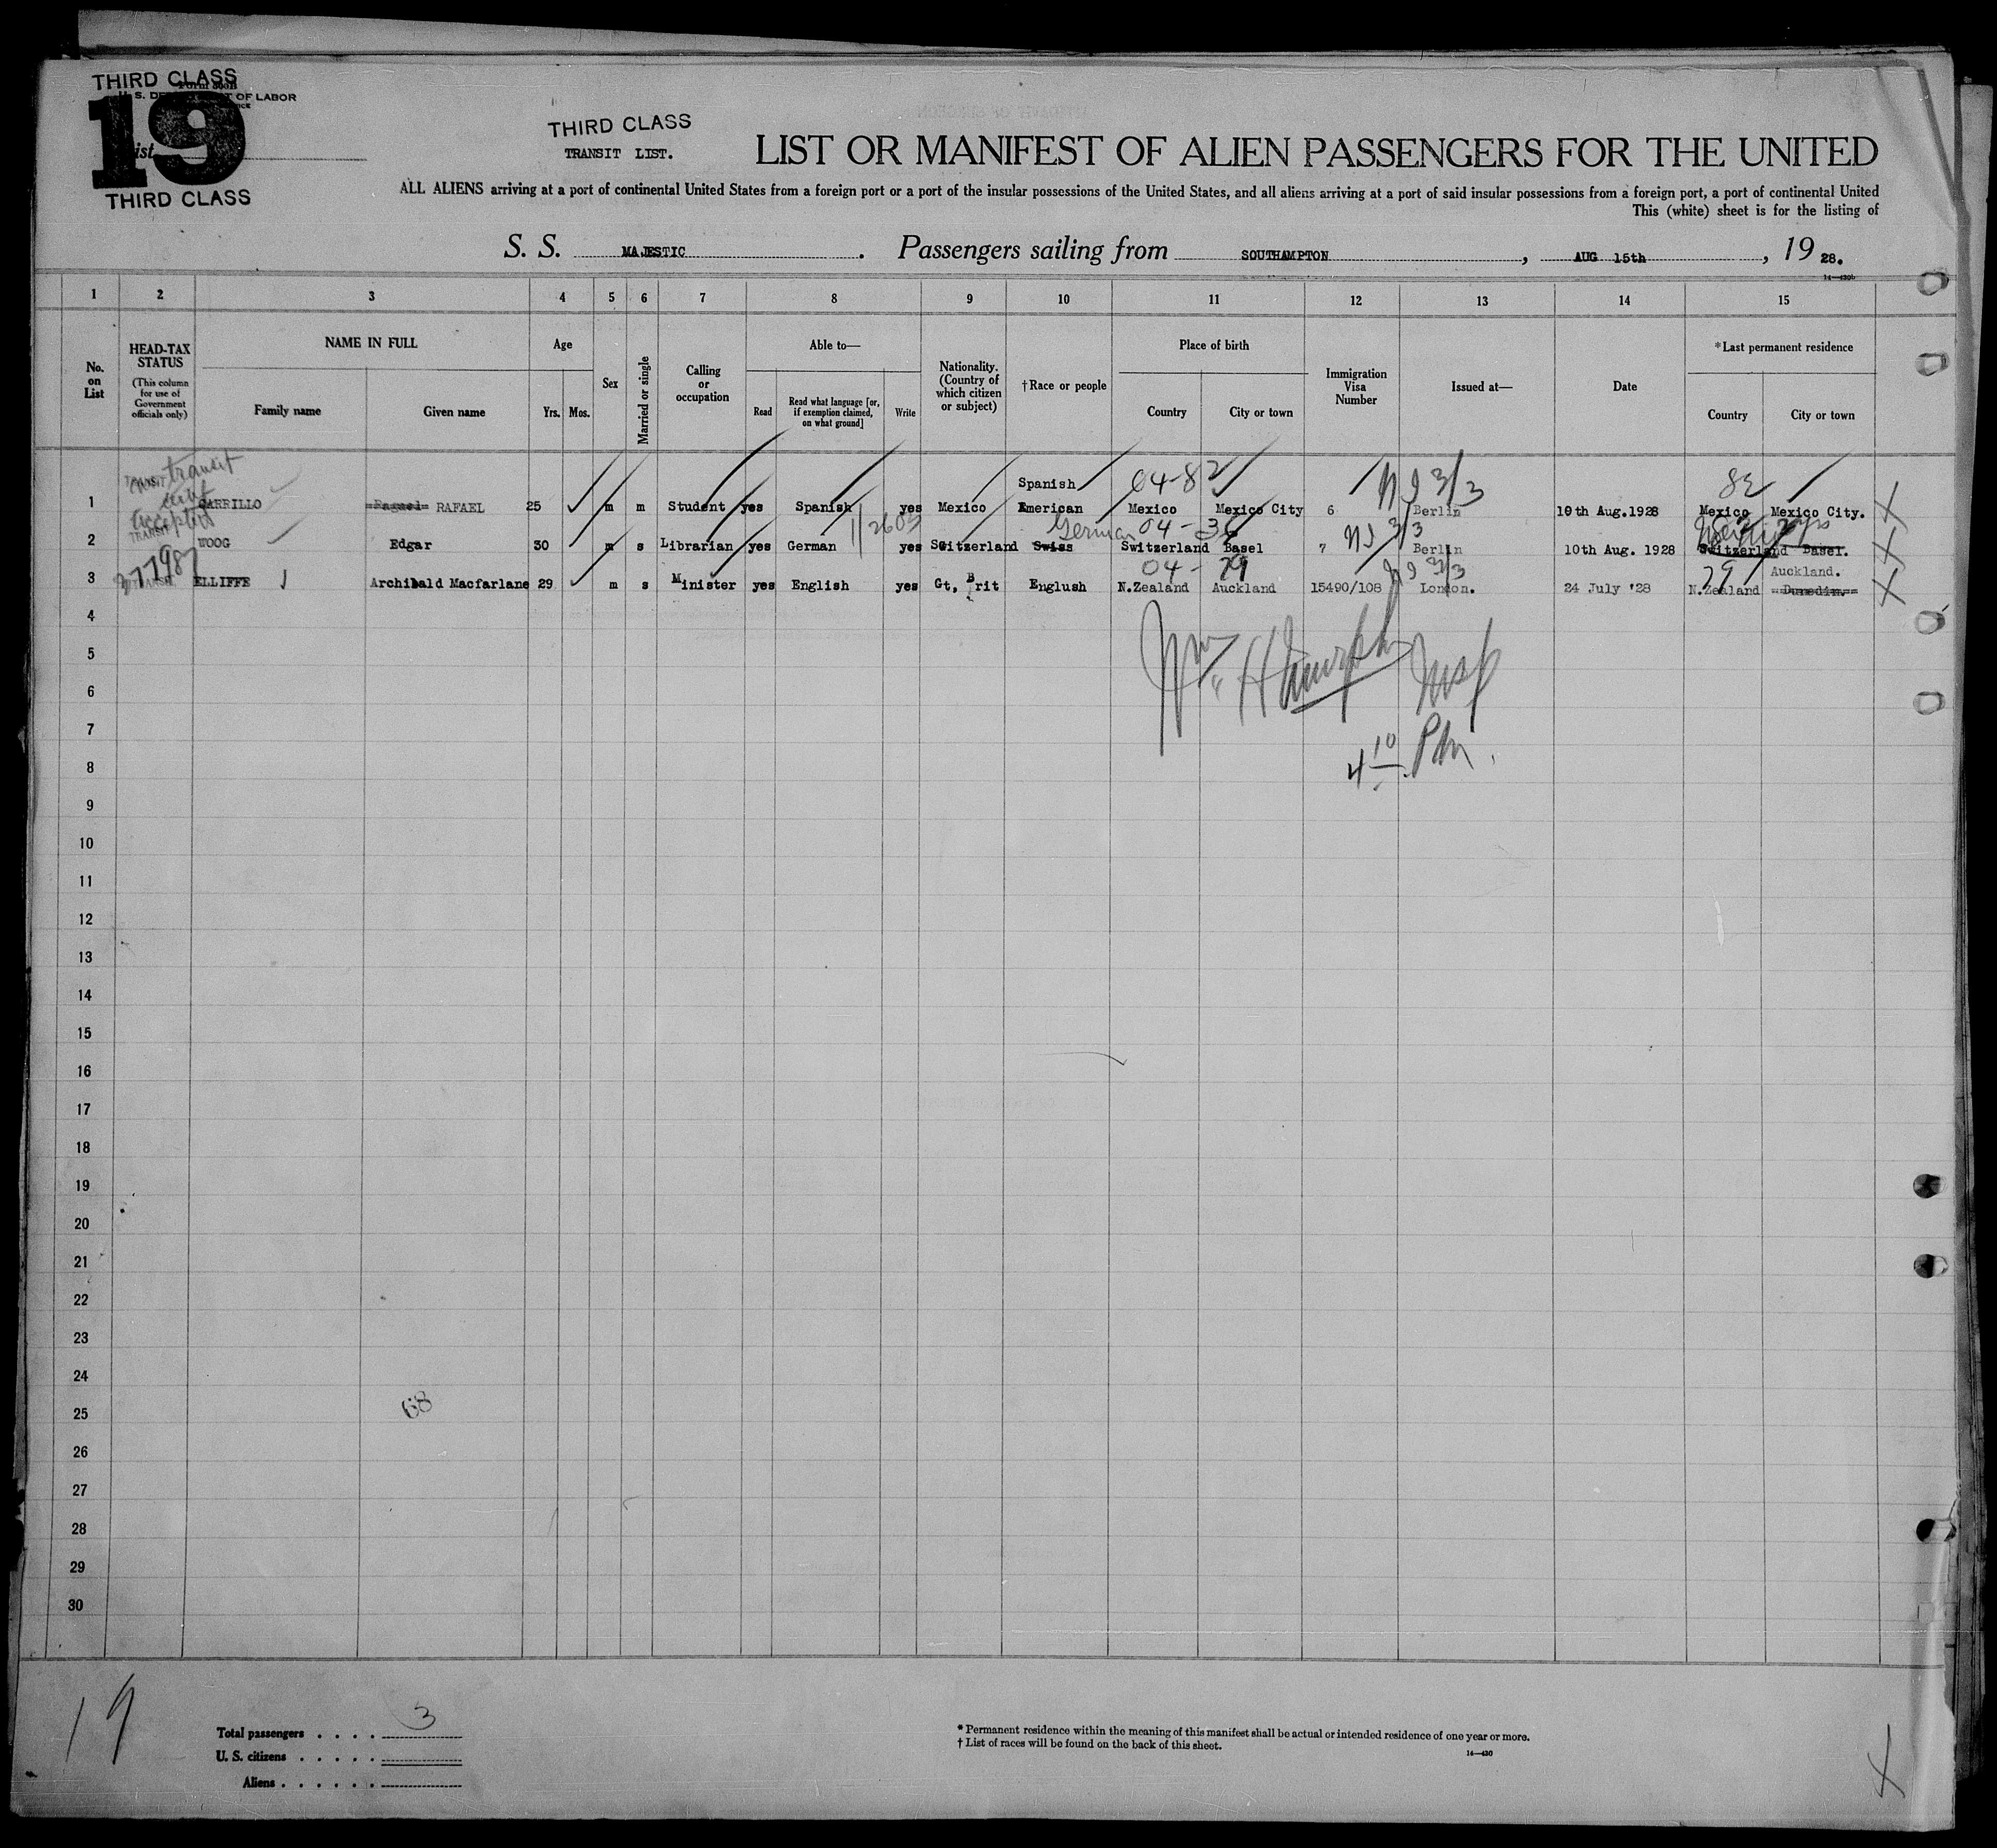 THIRD CLASS
Form 500B
U. S. DEPARTMENT OF LABOR
19
List
THIRD CLASS
THIRD CLASS
TRANSIT LIST.
LIST OR MANIFEST OF ALIEN PASSENGERS FOR THE UNITED
ALL ALIENS arriving at a port of continental United States from a foreign port or a port of the insular possessions of the United States, and all aliens arriving at a port of said insular possessions from a foreign port, a port of continental United
This (white) sheet is for the listing of
S. S. MAJESTIC. Passengers sailing from SOUTHAMPTON, AUG 15th, 19 28.
14—430b
1 2 3 4 5 6 7 8 9 10 11 12 13 14 15
No. on List
HEAD-TAX STATUS
(This column for use of Government officials only)
NAME IN FULL
Family name Given name
Age
Yrs. Mos.
Sex
Married or single
Calling or occupation
Able to—
Read Read what language [or, if exemption claimed, on what ground] Write
Nationality. (Country of which citizen or subject)
†Race or people
Place of birth
Country City or town
Immigration Visa Number
Issued at—
Date
*Last permanent residence
Country City or town
transit
TRANSIT
accepted
Spanish 04-82 NI 3/3 82
1 CARRILLO RAFAEL 25 m m Student yes Spanish yes Mexico American Mexico Mexico City 6 Berlin 10th Aug.1928 Mexico Mexico City. X
TRANSIT 11/2603 German 04-36 NI 3/3
2 WOOG Edgar 30 m s Librarian yes German yes Switzerland Swiss Switzerland Basel 7 Berlin 10th Aug. 1928 Switzerland Basel. X
377987 04-79 NI 3/3 79 Auckland.
3 ELLIFFE Archibald Macfarlane 29 m s Minister yes English yes Gt, Brit Englush N.Zealand Auckland 15490/108 London. 24 July '28 N.Zealand Dunedin. X
4
5
Wm H Murphy Insp
6
7
4 10 PM.
8
9
10
11
12
13
14
15
16
17
18
19
20
21
22
23
24
25 68
26
27
28
29
30
19
Total passengers . . . . 3
U. S. citizens . . . . .
Aliens . . . . . .
* Permanent residence within the meaning of this manifest shall be actual or intended residence of one year or more.
† List of races will be found on the back of this sheet.
14—430
X